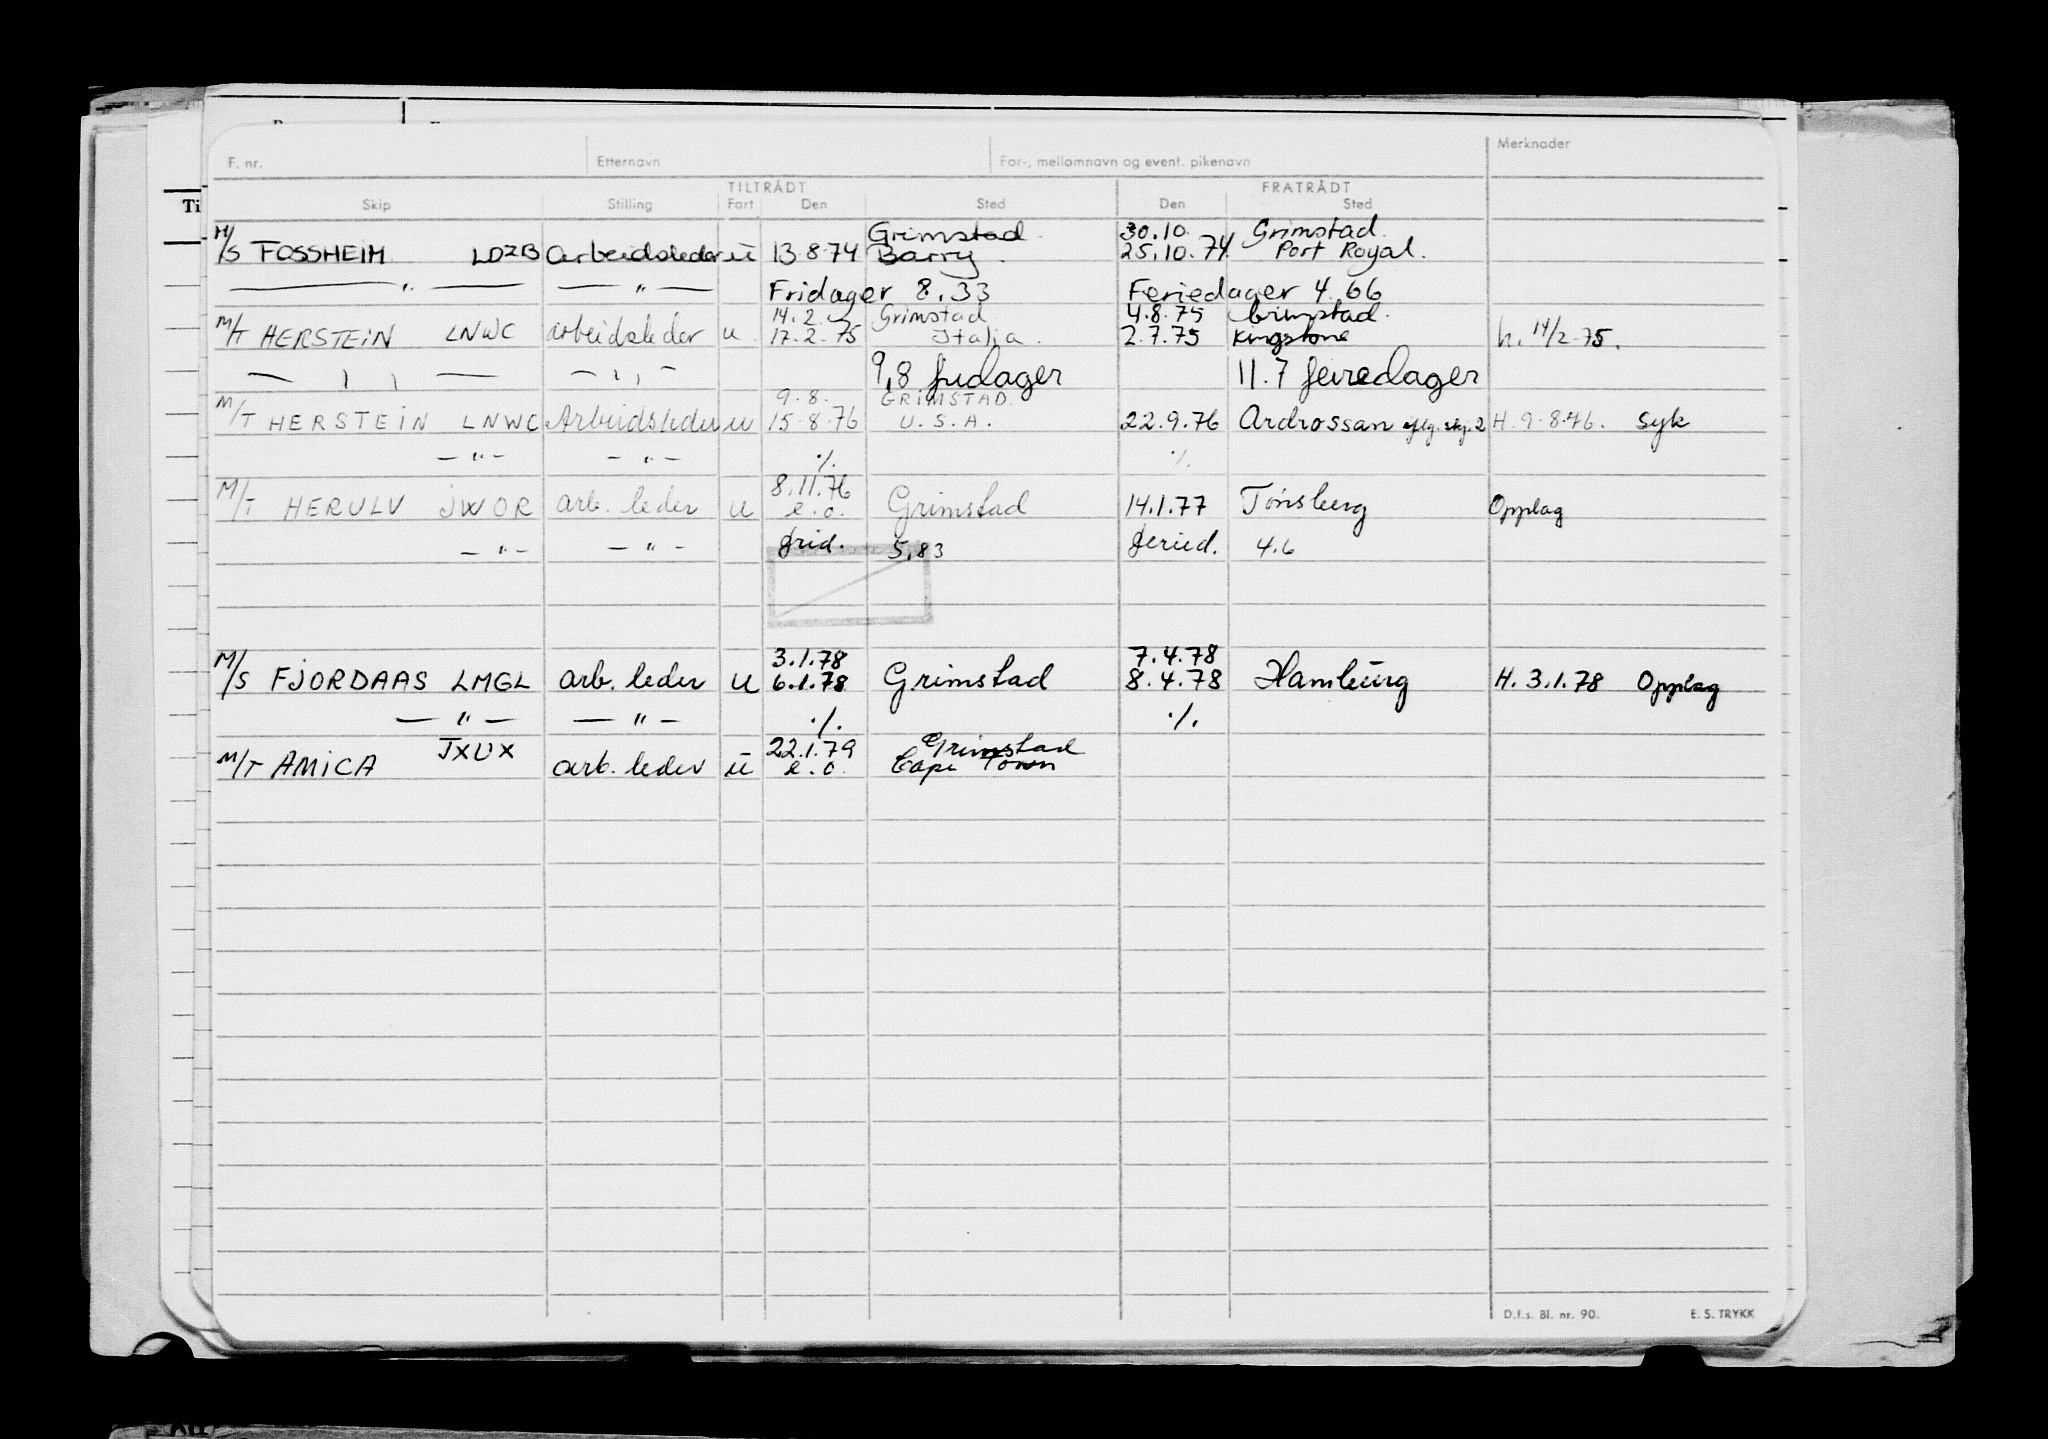 F. nr. Etternavn For-, mellomnavn og event. pikenavn Merknader
TILTRÅDT FRATRÅDT
Skip Stilling Fart Den Sted Den Sted
Grimstad 30.10. Grimstad.
M/S FOSSHEIM LDZB Arbeidsleder u 13.8.74 Barry. 25.10.74 Port Royal.
— " — — " — Fridager 8.33 Feriedager 4.66
14.2. Grimstad 4.8.75 Grimstad.
M/T HERSTEIN LNWC arbeidsleder u 17.2.75 Italia. 2.7.75 Kingstone h. 14/2-75.
— " — — " — 9,8 fridager 11.7 feiredager
9.8. GRIMSTAD.
M/T HERSTEIN LNWC Arbeidsleder u 15.8.76 U.S.A. 22.9.76 Ardrossan H. 9.8.76. Syk
— " — — " — ./. ./.
8.11.76
M/T HERULV JWOR arb. leder u e.o. Grimstad 14.1.77 Tønsberg Opplag
— " — — " — frid. 5,83 feried. 4.6
3.1.78 7.4.78
M/S FJORDAAS LMGL arb. leder u 6.1.78 Grimstad 8.4.78 Hamburg H. 3.1.78 Opplag
— " — — " — ./. ./.
JXUX 22.1.79 Grimstad
M/T AMICA arb. leder u e.o. Cape Town
D.f.s. Bl. nr. 90. E. S. TRYKK
Ti